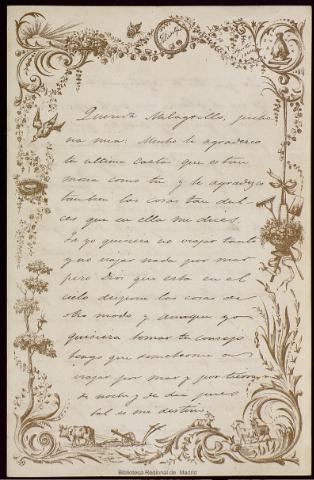 Querida Malagrillo, picho
na mia: Mucho te agradezco
la ultima carta que es tan
mona como tu y te agradezco
tambien las cosas tan dul
ces que en ella me dices.
Ya yo quisiera no viajar tanto
y no viajar nada por mar
pero Dios que esta en el
cielo dispone las cosas de
otro modo y aunque yo
quisiera tomar tu consejo
tengo que someterme a
viajar por mar y por tierra
de noche y de dia pues
tal es mi destino
Biblioteca Regional de Madrid